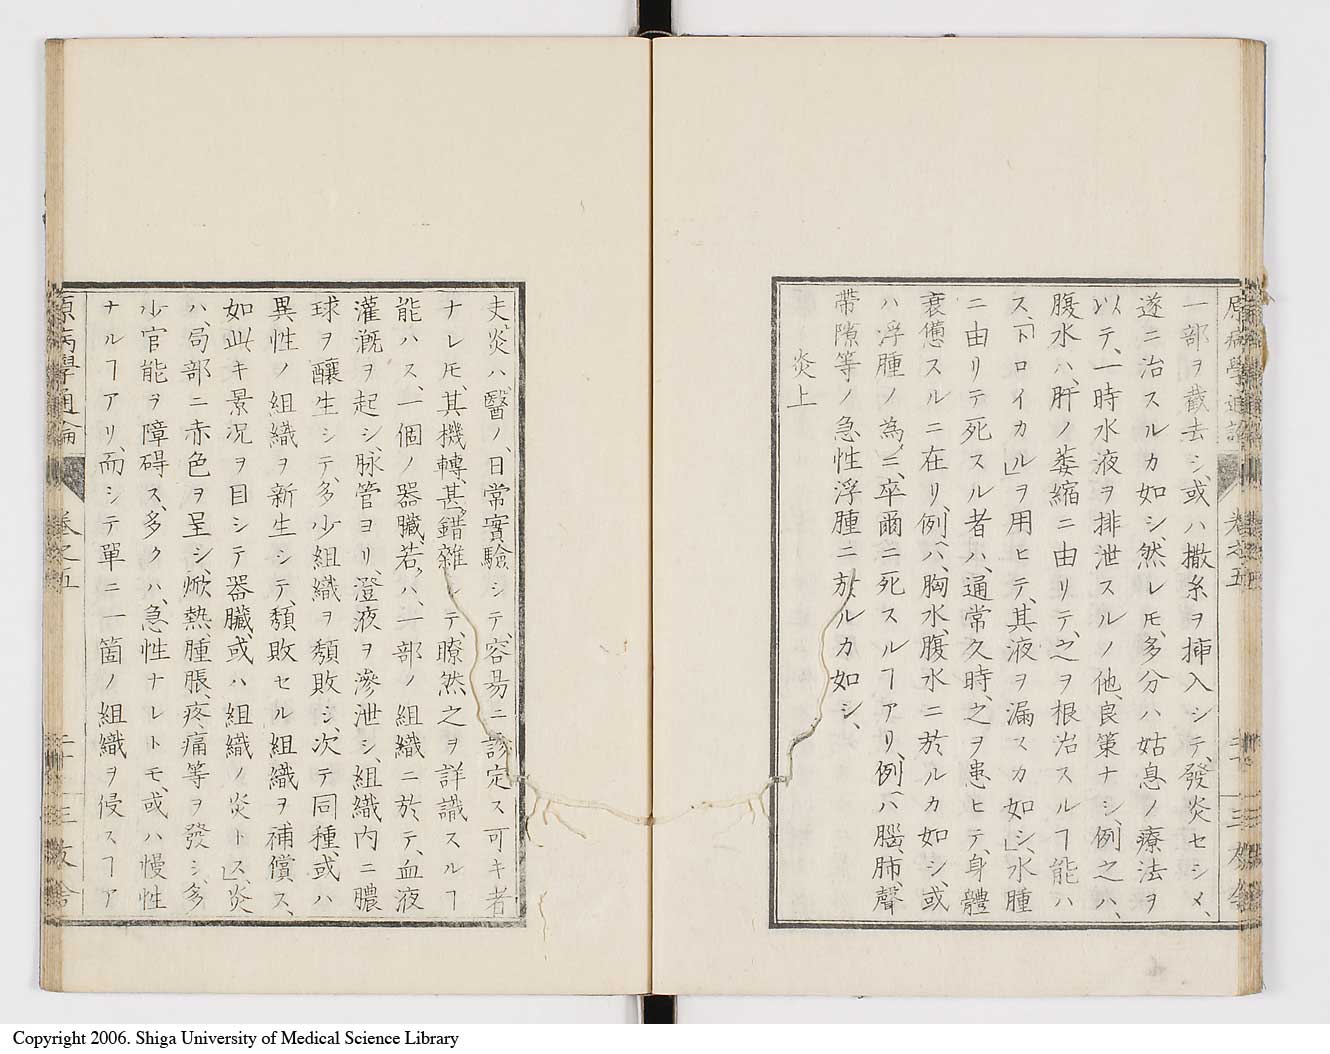 原病學通論
卷之五
一部ヲ截去シ、或ハ撒糸ヲ挿入シテ、發炎セシメ、
遂ニ治スルカ如シ、然レモ、多分ハ姑息ノ療法ヲ
以テ、一時水液ヲ排泄スルノ他、良策ナシ、例之ハ、
腹水ハ、肝ノ萎縮ニ由リテ、之ヲ根治スルヿ能ハ
ス、「トロイカル」ヲ用ヒテ、其液ヲ漏スカ如シ、水腫
ニ由リテ死スル者ハ、通常久時、之ヲ患ヒテ、身體
衰憊スルニ在リ、例ハ、胸水、腹水ニ於ルカ如シ、或
ハ浮腫ノ為ニ、卒爾ニ死スルヿアリ、例ハ腦、肺、聲
帶隙等ノ急性浮腫ニ於ルカ如シ、
炎上
夫、炎ハ、醫ノ、日常實驗シテ、容易ニ診定ス可キ者
ナレモ、其機轉、甚錯雜シテ、瞭然之ヲ詳識スルヿ
能ハス、一個ノ器臟若ハ、一部ノ組織ニ於テ、血液
灌漑ヲ起シ、脉管ヨリ、澄液ヲ滲泄シ、組織内ニ膿
球ヲ釀生シテ、多少組織ヲ頽敗シ、次テ同種、或ハ
異性ノ組織ヲ新生シテ、頽敗セル組織ヲ補償ス、
如此キ景況ヲ目シテ器臟、或ハ組織ノ炎トス、炎
ハ、局部ニ赤色ヲ呈シ、焮熱、腫脹、疼痛等ヲ發シ、多
少官能ヲ障碍ス、多クハ、急性ナレトモ、或ハ慢性
ナルヿアリ、而シテ單ニ一箇ノ組織ヲ侵スヿア
原病學通論
卷之五
三友舍